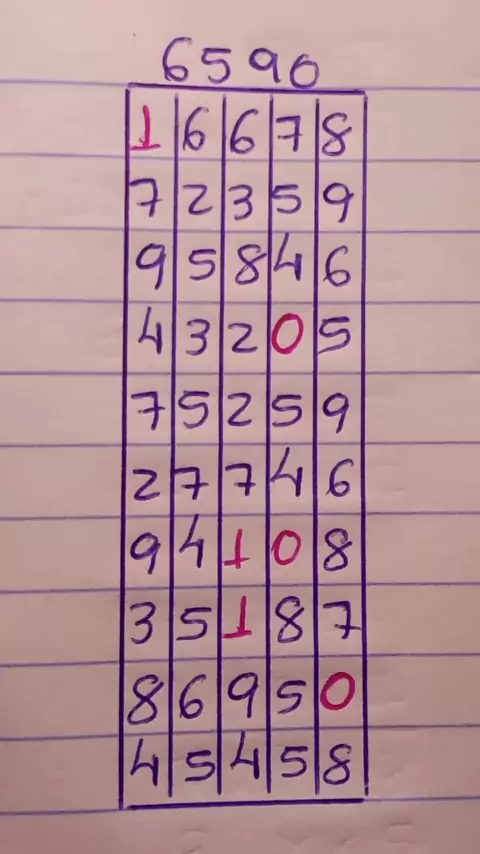 6590
1 6 6 7 8
7 2 3 5 9
9 5 8 4 6
4 3 2 0 5
7 5 2 5 9
2 7 7 4 6
9 4 1 0 8
3 5 1 8 7
8 6 9 5 0
4 5 4 5 8